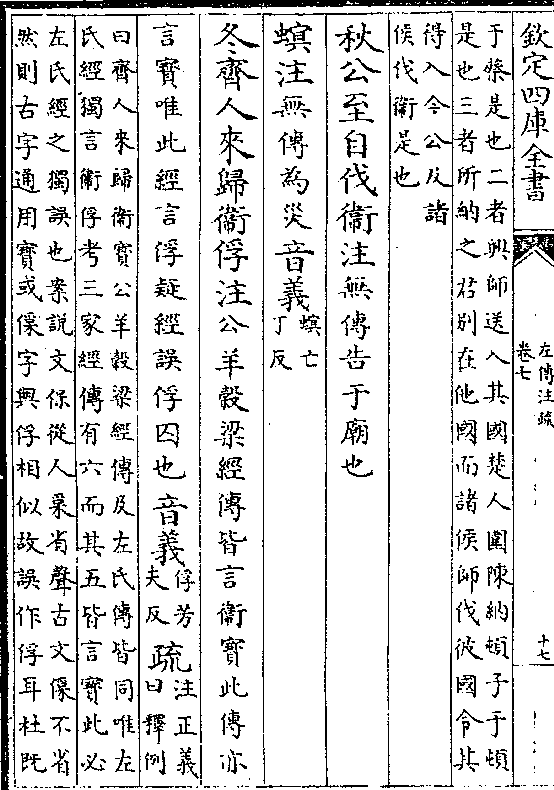 欽定四庫全書
左傳注疏
卷七
十七
于緐是也二者興師送入其國楚人圍陳納頓子于頓
是也三者所納之君别在他國而諸侯師伐彼國令其
得入今公及諸
侯伐衞是也
秋公至自伐衞注無傳告于廟也
螟注無傳為災音義螟亡
丁反
冬齊人來歸衞俘注公羊穀梁經傳皆言衞寳此傳亦
言寳唯此經言俘疑經誤俘囚也音義俘芳
夫反
疏注正義
曰釋例
曰齊人來歸衞寳公羊穀梁經傳及左氏傳皆同唯左
氏經獨言衞俘考三家經傳有六而其五皆言寳此必
左氏經之獨誤也案說文保從人𤓽省聲古文㑽不省
然則古字通用寳或㑽字與俘相似故誤作俘耳杜既